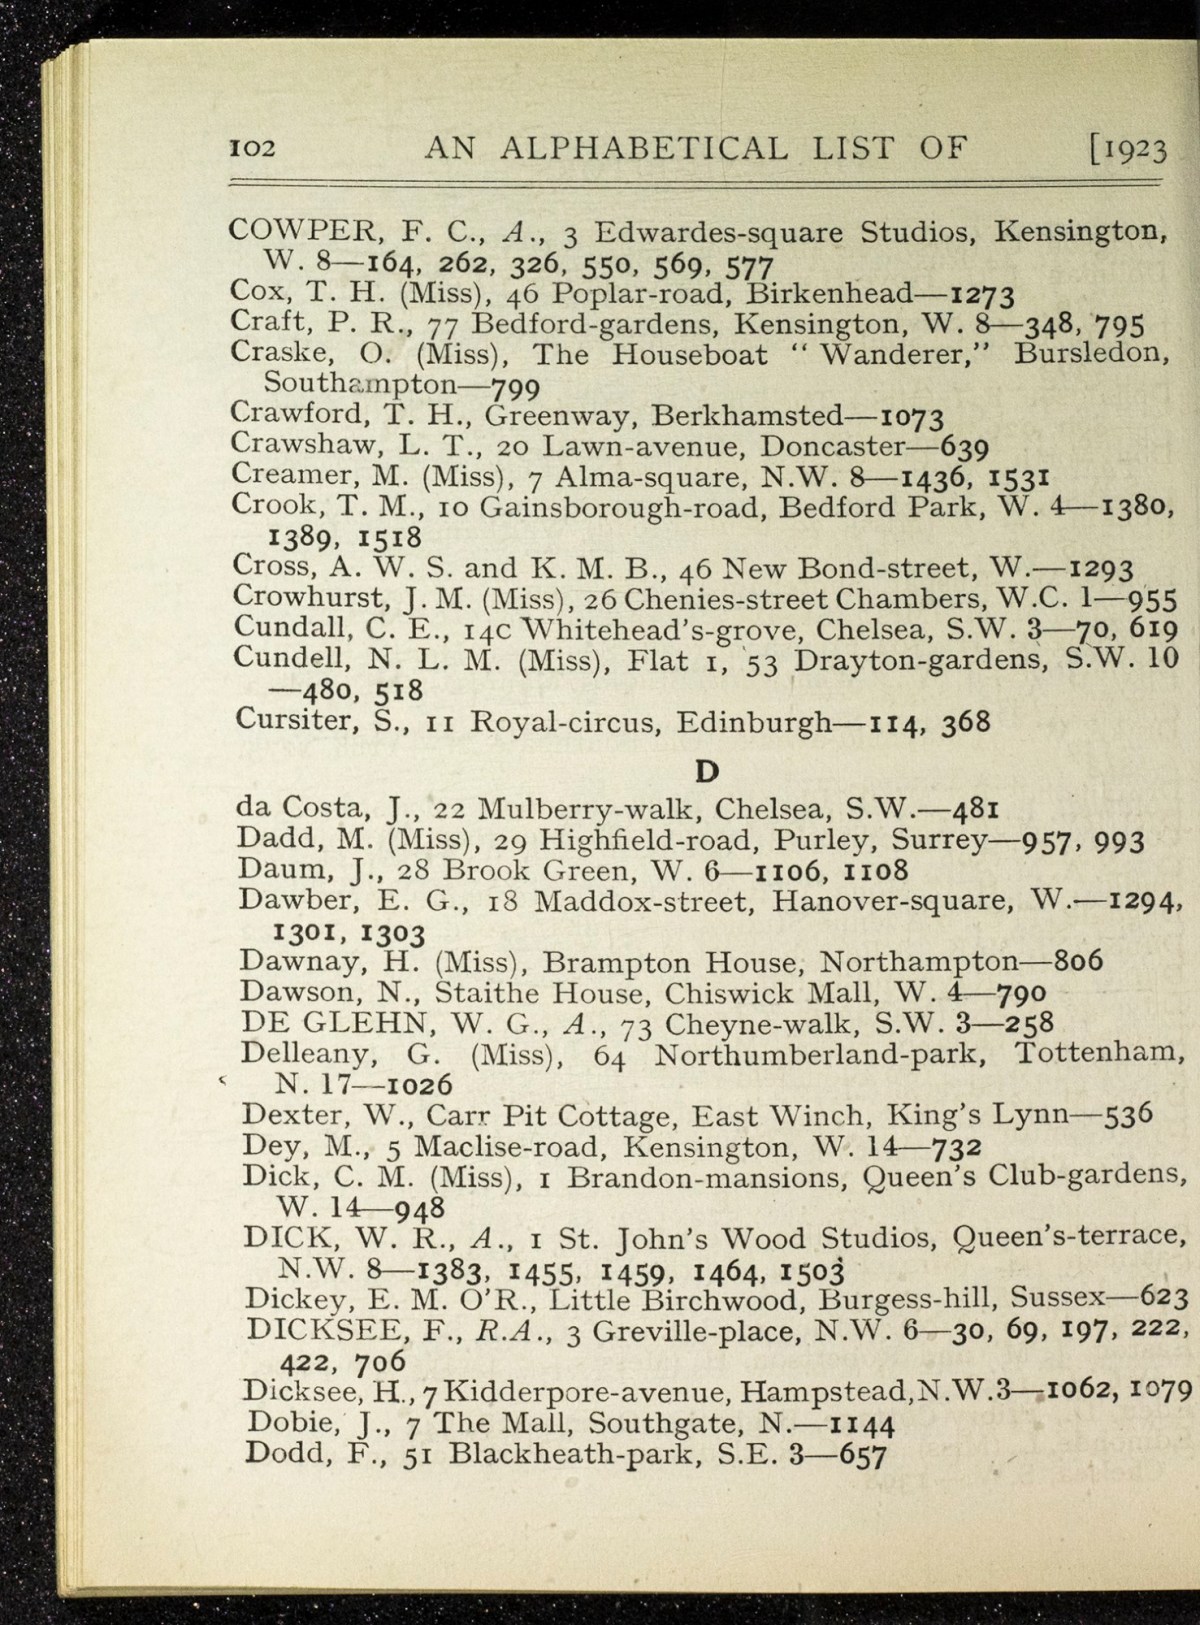 102 AN ALPHABETICAL LIST OF [1923
COWPER, F. C., A., 3 Edwardes-square Studios, Kensington,
W. 8—164, 262, 326, 550, 569, 577
Cox, T. H. (Miss), 46 Poplar-road, Birkenhead—1273
Craft, P. R., 77 Bedford-gardens, Kensington, W. 8—348, 795
Craske, O. (Miss), The Houseboat “ Wanderer,” Bursledon,
Southampton—799
Crawford, T. H., Greenway, Berkhamsted—1073
Crawshaw, L. T., 20 Lawn-avenue, Doncaster—639
Creamer, M. (Miss), 7 Alma-square, N.W. 8—1436, 1531
Crook, T. M., 10 Gainsborough-road, Bedford Park, W. 4—1380,
1389, 1518
Cross, A. W. S. and K. M. B., 46 New Bond-street, W.—1293
Crowhurst, J. M. (Miss), 26 Chenies-street Chambers, W.C. 1—955
Cundall, C. E., 14C Whitehead's-grove, Chelsea, S.W. 3—70, 619
Cundell, N. L. M. (Miss), Flat 1, 53 Drayton-gardens, S.W. 10
—480, 518
Cursiter, S., 11 Royal-circus, Edinburgh—114, 368
D
da Costa, J., 22 Mulberry-walk, Chelsea, S.W.—481
Dadd, M. (Miss), 29 Highfield-road, Purley, Surrey—957, 993
Daum, J., 28 Brook Green, W. 6—1106, 1108
Dawber, E. G., 18 Maddox-street, Hanover-square, W.—1294,
1301, 1303
Dawnay, H. (Miss), Brampton House, Northampton—806
Dawson, N., Staithe House, Chiswick Mall, W. 4—790
DE GLEHN, W. G., A., 73 Cheyne-walk, S.W. 3—258
Delleany, G. (Miss), 64 Northumberland-park, Tottenham,
N. 17—1026
Dexter, W., Carr Pit Cottage, East Winch, King's Lynn—536
Dey, M., 5 Maclise-road, Kensington, W. 14—732
Dick, C. M. (Miss), 1 Brandon-mansions, Queen's Club-gardens,
W. 14—948
DICK, W. R., A., 1 St. John's Wood Studios, Queen's-terrace,
N.W. 8—1383, 1455, 1459, 1464, 1503
Dickey, E. M. O'R., Little Birchwood, Burgess-hill, Sussex—623
DICKSEE, F., R.A., 3 Greville-place, N.W. 6—30, 69, 197, 222,
422, 706
Dicksee, H., 7 Kidderpore-avenue, Hampstead, N.W.3—1062, 1079
Dobie, J., 7 The Mall, Southgate, N.—1144
Dodd, F., 51 Blackheath-park, S.E. 3—657